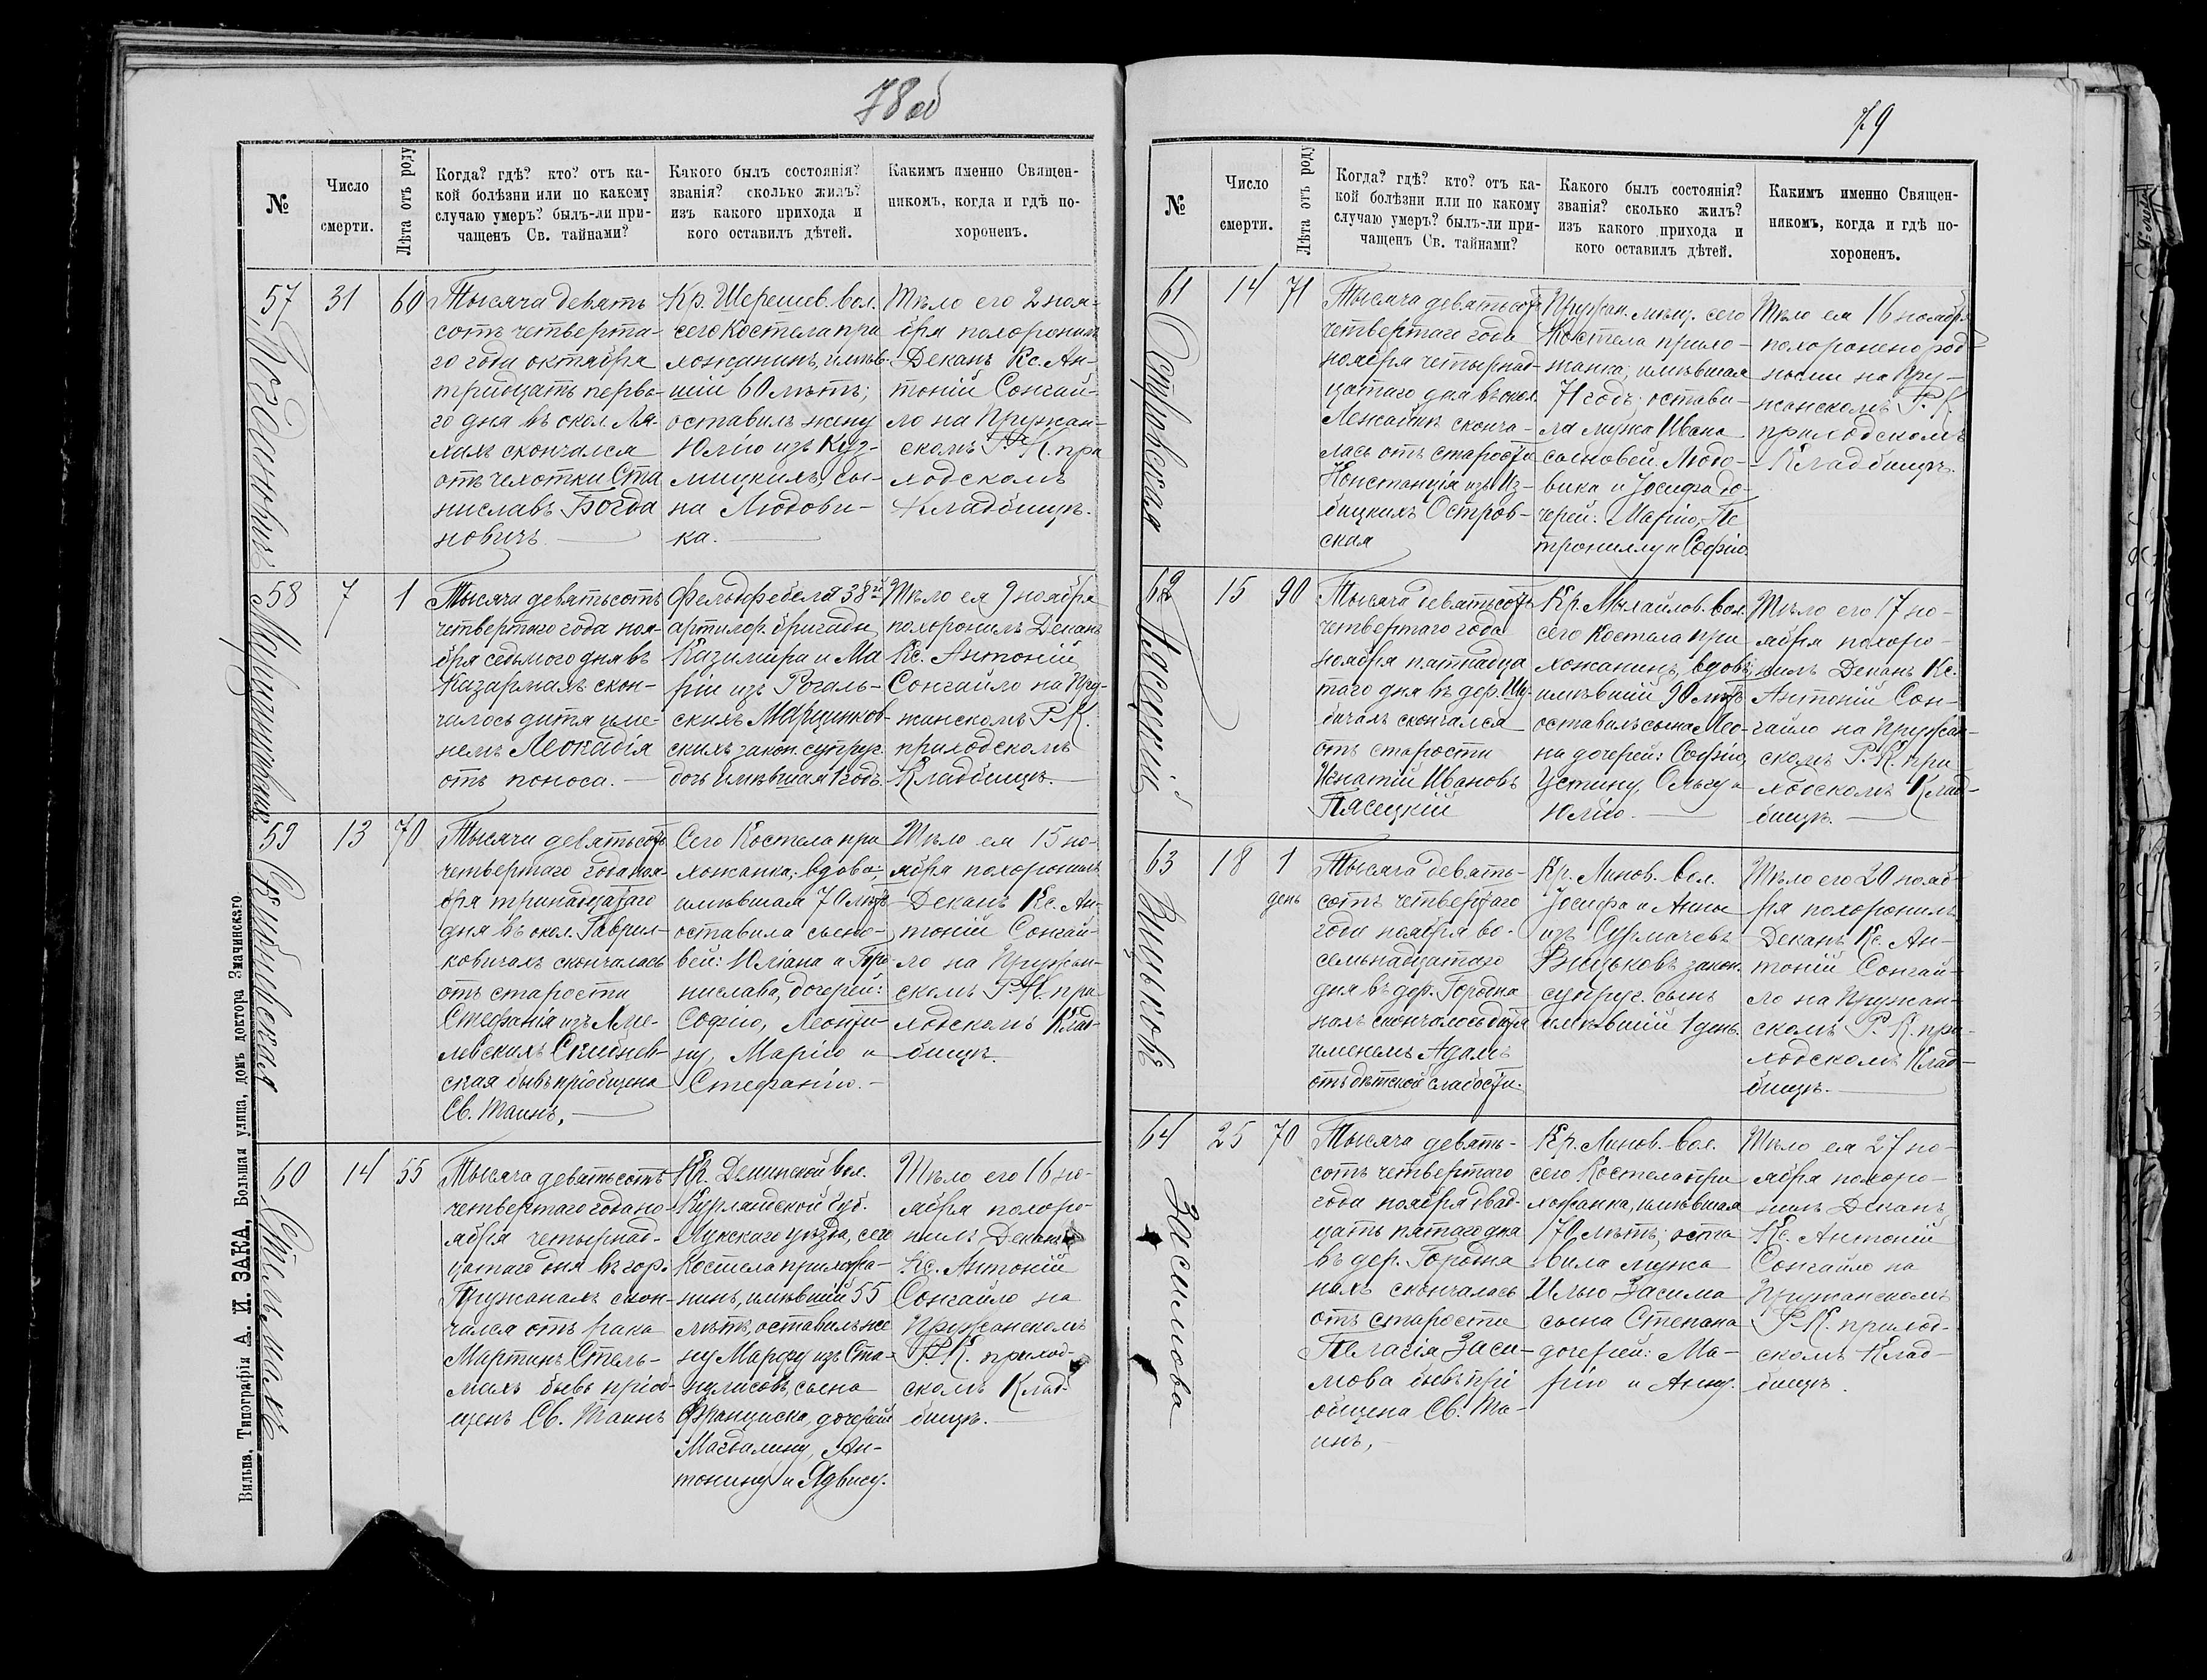 78 об
№
Число
смерти.
Лѣта отъ роду
Когда? гдѣ? кто? отъ ка-
кой болѣзни или по какому
случаю умеръ? былъ-ли при-
чащенъ Св. тайнами?
Какого былъ состоянія?
званія? сколько жилъ?
изъ какого прихода и
кого оставилъ дѣтей.
Какимъ именно Священ-
никомъ, когда и гдѣ по-
хороненъ.
57
Богдановичъ
31
60
Тысяча девять
сотъ четверта-
го года октября
тридцать перва-
го дня въ окол. Ля-
хахъ скончался
отъ чахотки Ста
ниславъ Богда
новичъ
Кр. Шерешев. вол.
сего Костела при
хожанинъ, имѣв-
шій 60 лѣтъ;
оставилъ жену
Юлію изъ Куз-
мицкихъ, сы-
на Людови-
ка.
Тѣло его 2 ноя-
бря похоронилъ
Деканъ Кс. Ан-
тоній Сонгай-
ло на Пружан-
скомъ Р. К. при
ходскомъ
Кладбищѣ.
58
Марцинковская
7
1
Тысяча девятьсотъ
четвертаго года ноя-
бря седьмого дня въ
Казармахъ скон-
чалось дитя име-
немъ Леокадія
отъ поноса.
Фельдфебеля 38й
артилер. бригады
Казимира и Ма
ріи изъ Рогаль-
скихъ Марцинков-
скихъ закон. супруг.
дочь имѣвшая 1 годъ.
Тѣло ея 9 ноября
похоронилъ Деканъ
Кс. Антоній
Сонгайло на Пру-
жанскомъ Р. К.
приходскомъ
Кладбищѣ.
59
Скибневская
13
70
Тысяча девятьсотъ
четвертаго года ноя-
бря тринадцатаго
дня въ окол. Гаврил-
ковичахъ скончалась
отъ старости
Стефанія изъ Хме-
левскихъ Скибнев-
ская бывъ пріобщена
Св. Таинъ,
Сего Костела при
хожанка; вдова;
имѣвшая 70 лѣтъ
оставила сыно-
вей: Юліана и Бро
нислава, дочерей:
Софію, Леонти-
ну, Марію и
Стефанію.
Тѣло ея 15 но-
ября похоронилъ
Деканъ Кс. Ан-
тоній Сонгай-
ло на Пружан-
скомъ Р. К. при
ходскомъ Клад-
бищѣ.
60
Стельмахъ
14
55
Тысяча девятьсотъ
четвертаго года но-
ября четырнад-
цатаго дня въ гор.
Пружанахъ скон-
чался отъ рака
Мартинъ Стель-
махъ бывъ пріоб-
щенъ Св. Таинъ
Кр. Деминской вол.
Курляндской губ.
Лукскаго уѣзда, сего
Костела прихожа-
нинъ, имѣвшій 55
лѣтъ, оставилъ же
ну Марфу изъ Ста-
нулисовъ, сына
Франциска, дочерей
Магдалину, Ан-
тонину и Ядвигу.
Тѣло его 16 но-
ября похоро-
нилъ Деканъ
Кс. Антоній
Сонгайло на
Пружанскомъ
Р. К. приход-
скомъ Клад-
бищѣ.
Вильна, Типографія А. И. ЗАКА, Большая улица, домъ доктора Змачинскаго
79
№
Число
смерти.
Лѣта отъ роду
Когда? гдѣ? кто? отъ ка-
кой болѣзни или по какому
случаю умеръ? былъ-ли при-
чащенъ Св. тайнами?
Какого былъ состоянія?
званія? сколько жилъ?
изъ какого прихода и
кого оставилъ дѣтей.
Какимъ именно Священ-
никомъ, когда и гдѣ по-
хороненъ.
61
Островская
14
71
Тысяча девятьсотъ
четвертаго года
ноября четырнад-
цатаго дня въ окол.
Лежайкѣ сконча-
лась отъ старости
Констанція изъ Из-
бицкихъ Остров-
ская
Пружан. мѣщ. сего
Костела прихо-
жанка, имѣвшая
71 годъ; остави-
ла мужа Ивана
сыновей Людо-
вика и Іосифа до-
черей: Марію, Пе
трониллу и Софію.
Тѣло ея 16 ноября
похоронено род-
ными на Пру-
жанскомъ Р. К.
приходскомъ
Кладбищѣ.
62
Пясецкій
15
90
Тысяча девятьсотъ
четвертаго года
ноября пятнадца
таго дня въ дер. Шу-
бичахъ скончался
отъ старости
Игнатій Ивановъ
Пясецкій
Кр. Михайлов. вол.
сего Костела при
хожанинъ, вдовъ,
имѣвшій 90 лѣтъ
оставилъ сына Лео-
на дочерей: Софію,
Устину, Ольгу и
Юлію.
Тѣло его 17 но-
ября похоро-
нилъ Деканъ Кс.
Антоній Сон-
гайло на Пружан-
скомъ Р. К. при
ходскомъ Клад-
бищѣ.
63
Вицьковъ
18
1
день
Тысяча девять-
сотъ четвертаго
года ноября во-
семьнадцатаго
дня въ дер. Городня
нахъ скончалось дитя
именемъ Адамъ
отъ дѣтской слабости.
Кр. Линов. вол.
Іосифа и Анны
изъ Сурмачевъ
Вицьковъ закон.
супруг. сынъ
имѣвшій 1 день.
Тѣло его 20 нояб-
ря похоронилъ
Деканъ Кс. Ан-
тоній Сонгай-
ло на Пружан-
скомъ Р. К. при-
ходскомъ Клад-
бищѣ.
64
Засимова
25
70
Тысяча девять-
сотъ четвертаго
года ноября двад-
цать пятаго дня
въ дер. Городня
нахъ скончалась
отъ старости
Пелагія Заси-
мова бывъ прі
общена Св. Та-
инъ,
Кр. Линов. вол.
сего Костела при
хожанка, имѣвшая
70 лѣтъ; оста
вила мужа
Илью Засима
сына Степана
дочерей: Ма-
рію и Анну.
Тѣло ея 27 но-
ября похоро-
нилъ Деканъ
Кс. Антоній
Сонгайло на
Пружанскомъ
Р. К. приход-
скомъ Клад-
бищѣ.